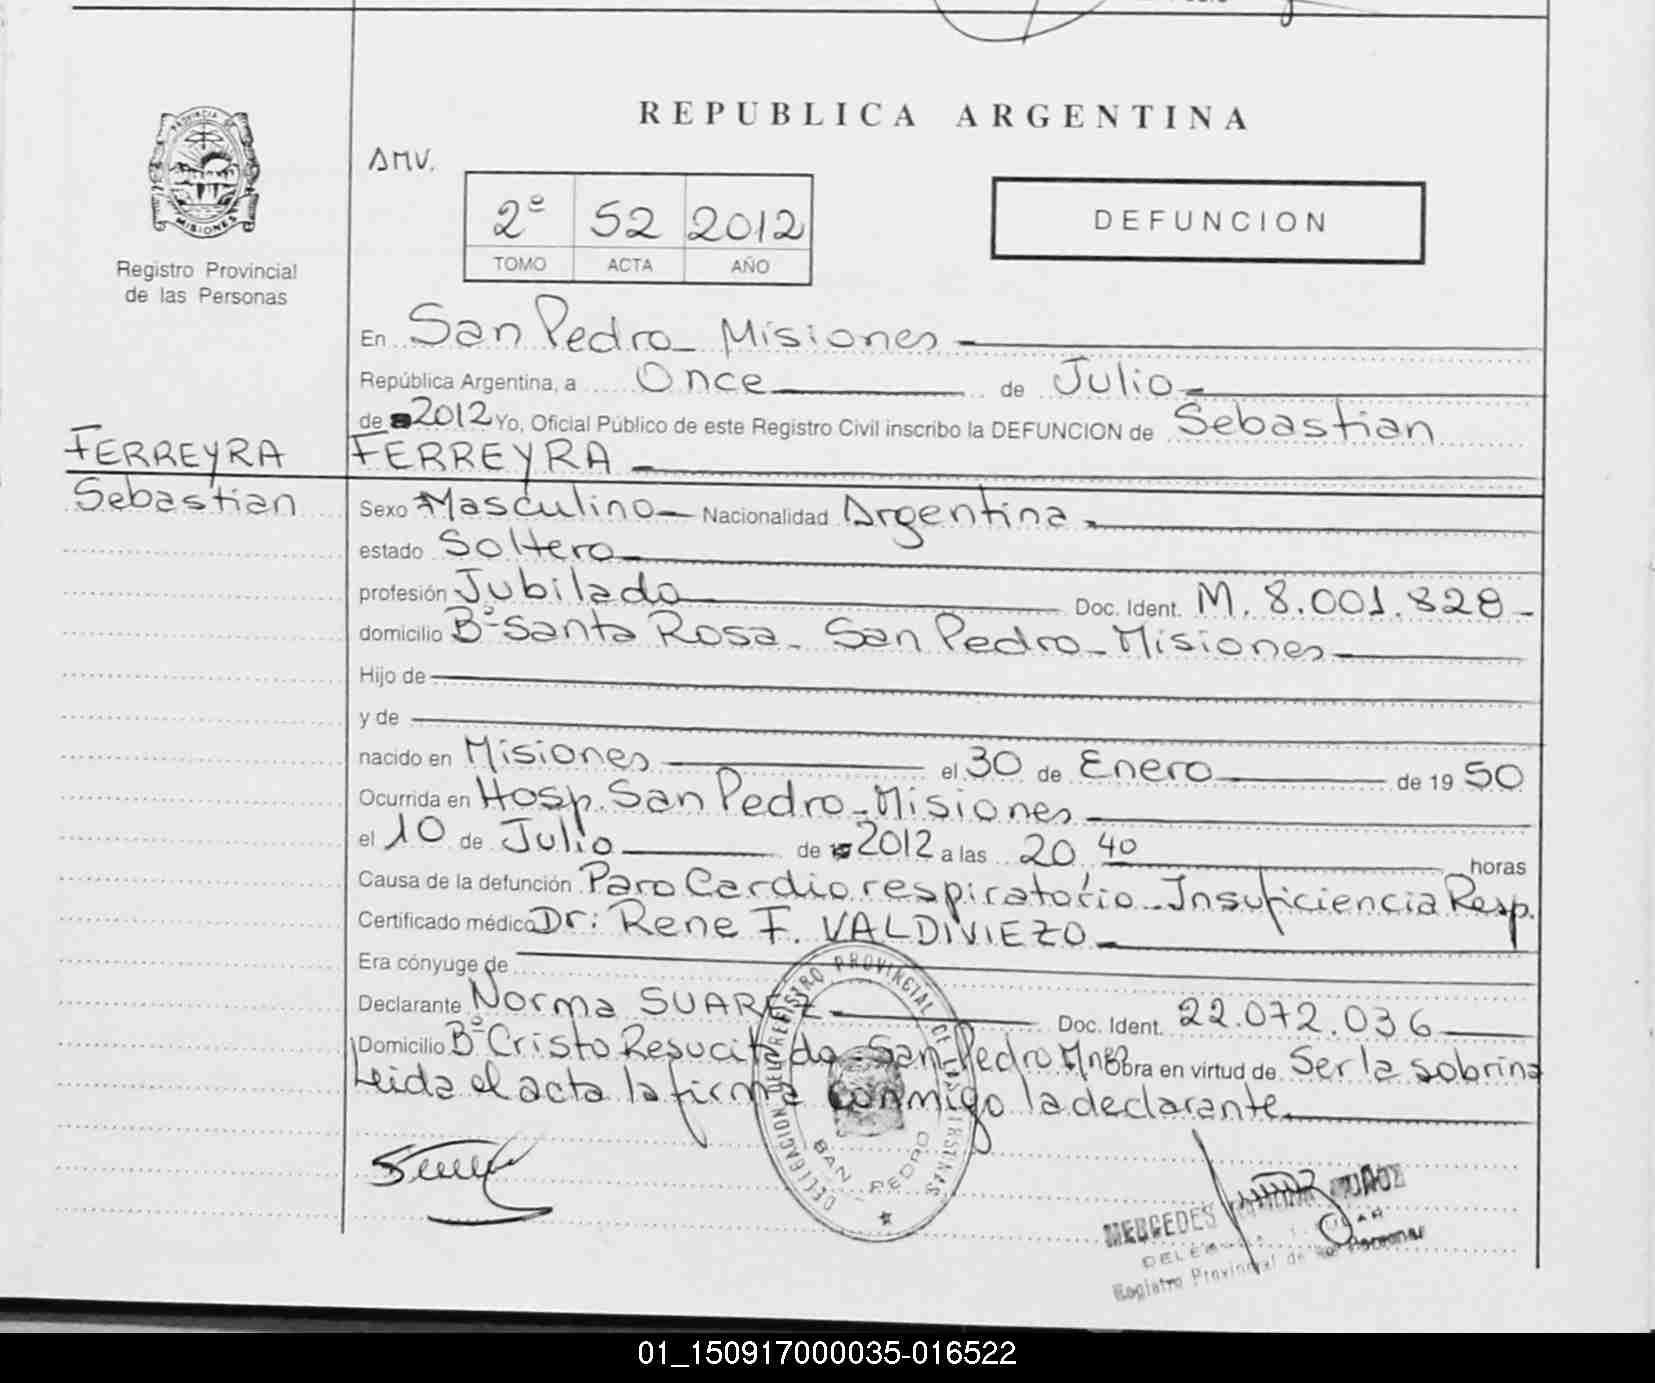 REPUBLICA ARGENTINA
AMV.
2º 52 2012
TOMO ACTA AÑO
DEFUNCION
PROVINCIA DE
MISIONES
Registro Provincial
de las Personas
En San Pedro - Misiones
República Argentina, a Once de Julio
de 2012 Yo, Oficial Público de este Registro Civil inscribo la DEFUNCION de Sebastian
FERREYRA FERREYRA
Sebastian
Sexo Masculino Nacionalidad Argentina
estado Soltero
profesión Jubilado Doc. Ident. M. 8.001.828
domicilio Bº Santa Rosa - San Pedro - Misiones
Hijo de
y de
nacido en Misiones el 30 de Enero de 19 50
Ocurrida en Hosp. San Pedro - Misiones
el 10 de Julio de 2012 a las 20 40 horas
Causa de la defunción Paro Cardio respiratorio - Insuficiencia Resp.
Certificado médico Dr: Rene F. VALDIVIEZO
Era cónyuge de
Declarante Norma SUAREZ Doc. Ident. 22.072.036
Domicilio Bº Cristo Resucitado - San Pedro Mnes Obra en virtud de Ser la sobrina
Leida el acta la firma conmigo la declarante
DELEGACION DEL REGISTRO PROVINCIAL DE LAS PERSONAS
SAN PEDRO
MERCEDES MUÑOZ
Registro Provincial de las Personas
01_150917000035-016522